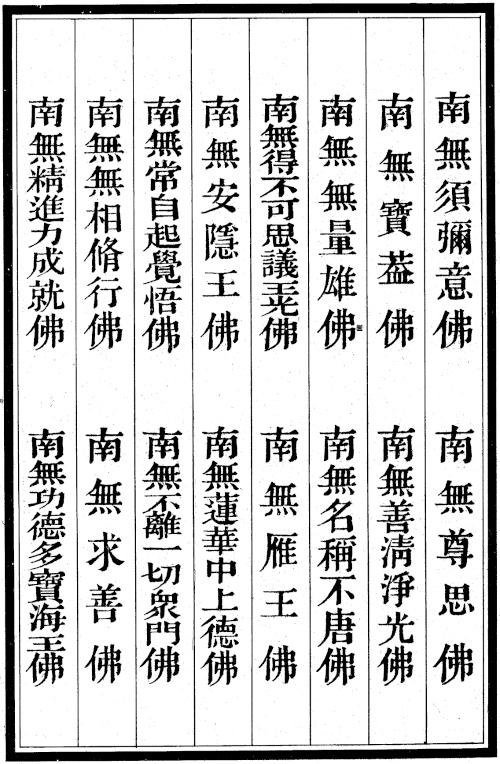 南無須彌意佛
南無尊思佛
南無寶葢佛
南無善淸淨光佛
南無無量雄佛
南無名稱不唐佛
南無得不可思議王光佛
南無雁王佛
南無安隱王佛
南無蓮華中上德佛
南無常自起覺悟佛
南無不離一切衆門佛
南無無相脩行佛
南無求善佛
南無精進力成就佛
南無功德多寶海王佛